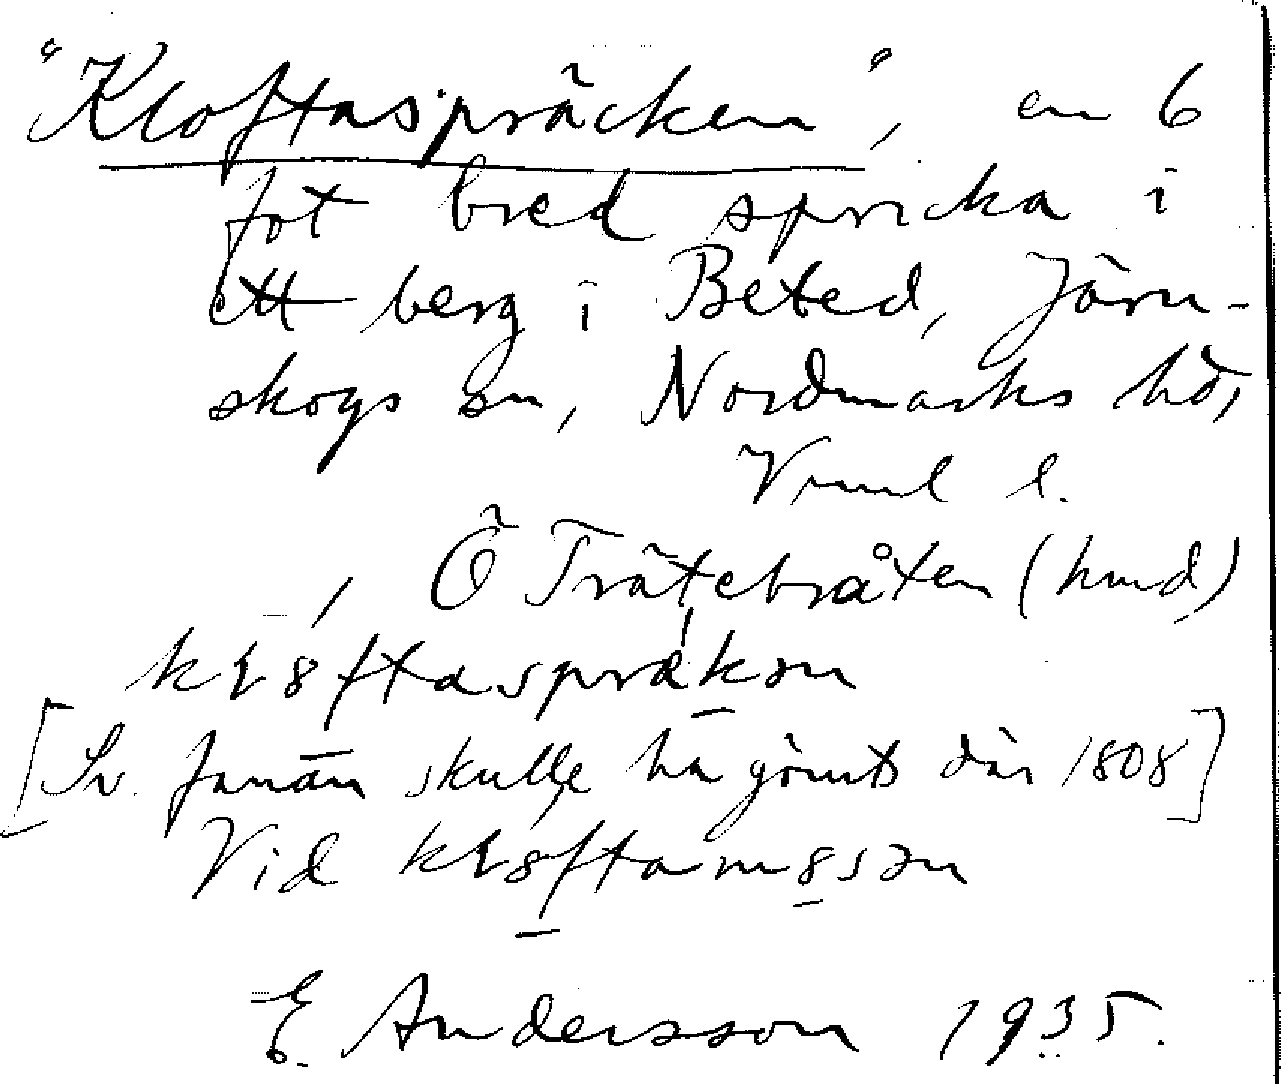 "Kloftaspräcken", en 6
fot bred spricka i
ett berg i Beted, Järn-
skogs sn, Nordmarks hd,
Vrml l.
Ö Trätebråten (hmd)
[Sv. Janän skulle ha gömts där 1808]
Vid
E Andersson 1935.